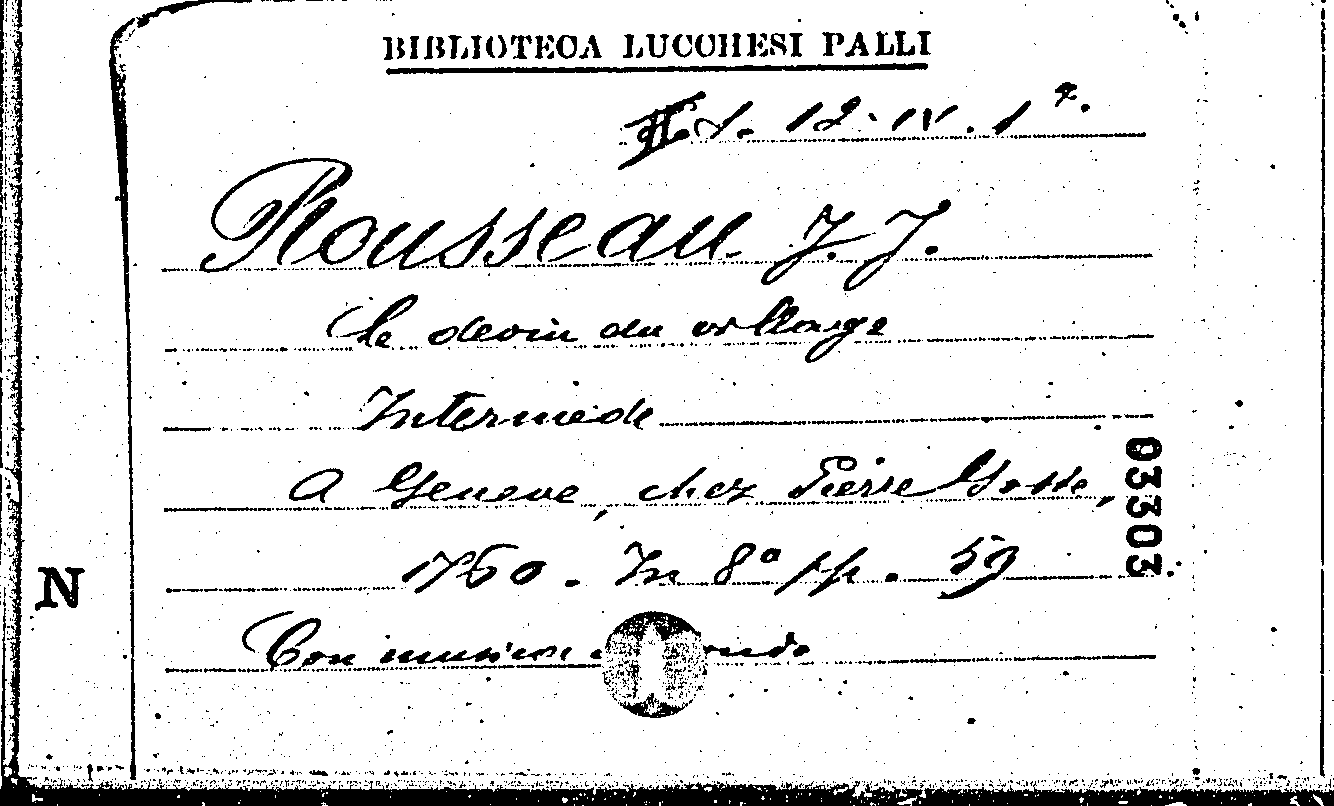 BIBLIOTECA LUCCHESI PALLI
12. IV. 1
Rousseau J. J.
Le devin du village
Intermede
A Geneve, chez Pierre Gosse,
1760. In 8° pp. 59
Con musica
03303
N